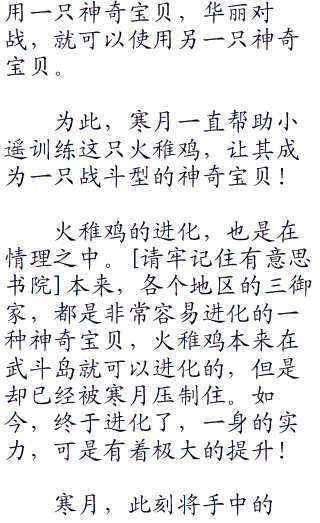 用一只神奇宝贝，华丽对
战，就可以使用另一只神奇
宝贝。
为此，寒月一直帮助小
遥训练这只火稚鸡，让其成
为一只战斗型的神奇宝贝！
火稚鸡的进化，也是在
情理之中。[请牢记住有意思
书院]本来，各个地区的三御
家，都是非常容易进化的一
种神奇宝贝，火稚鸡本来在
武斗岛就可以进化的，但是
却已经被寒月压制住。如
今，终于进化了，一身的实
力，可是有着极大的提升！
寒月，此刻将手中的